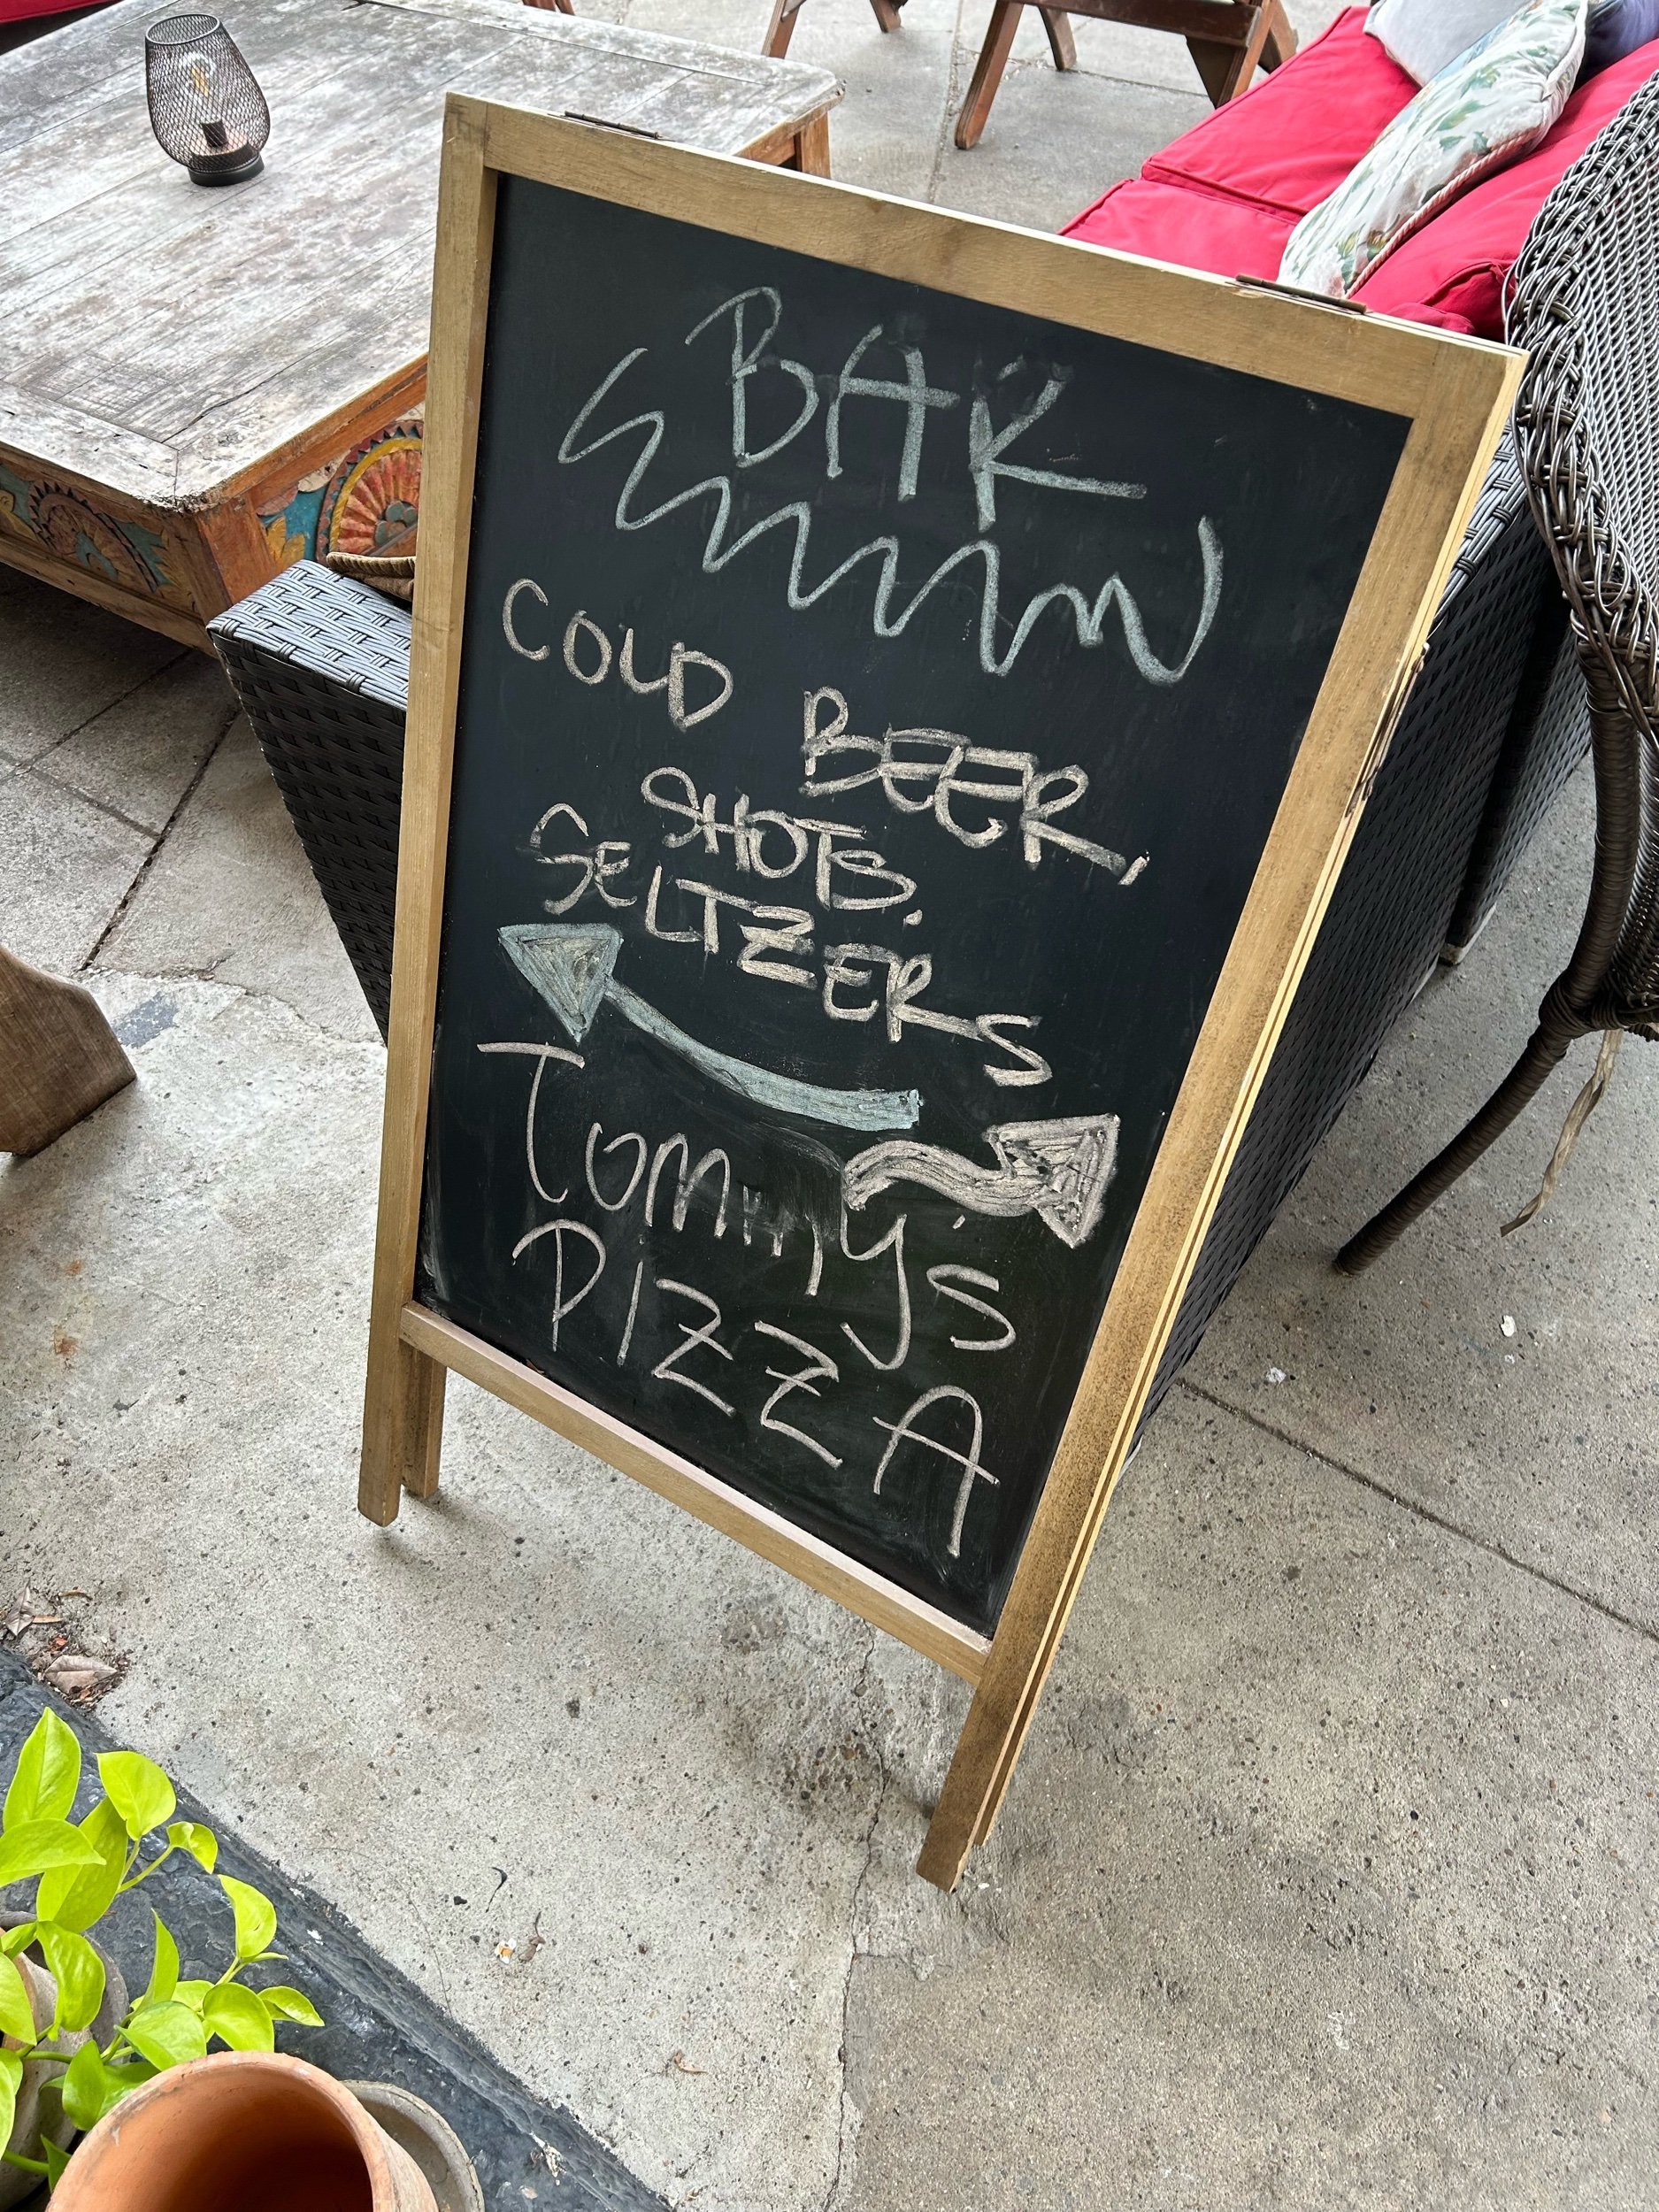 BAR
COLD BEER,
SHOTS.
SELTZERS
Tommy's
PIZZA